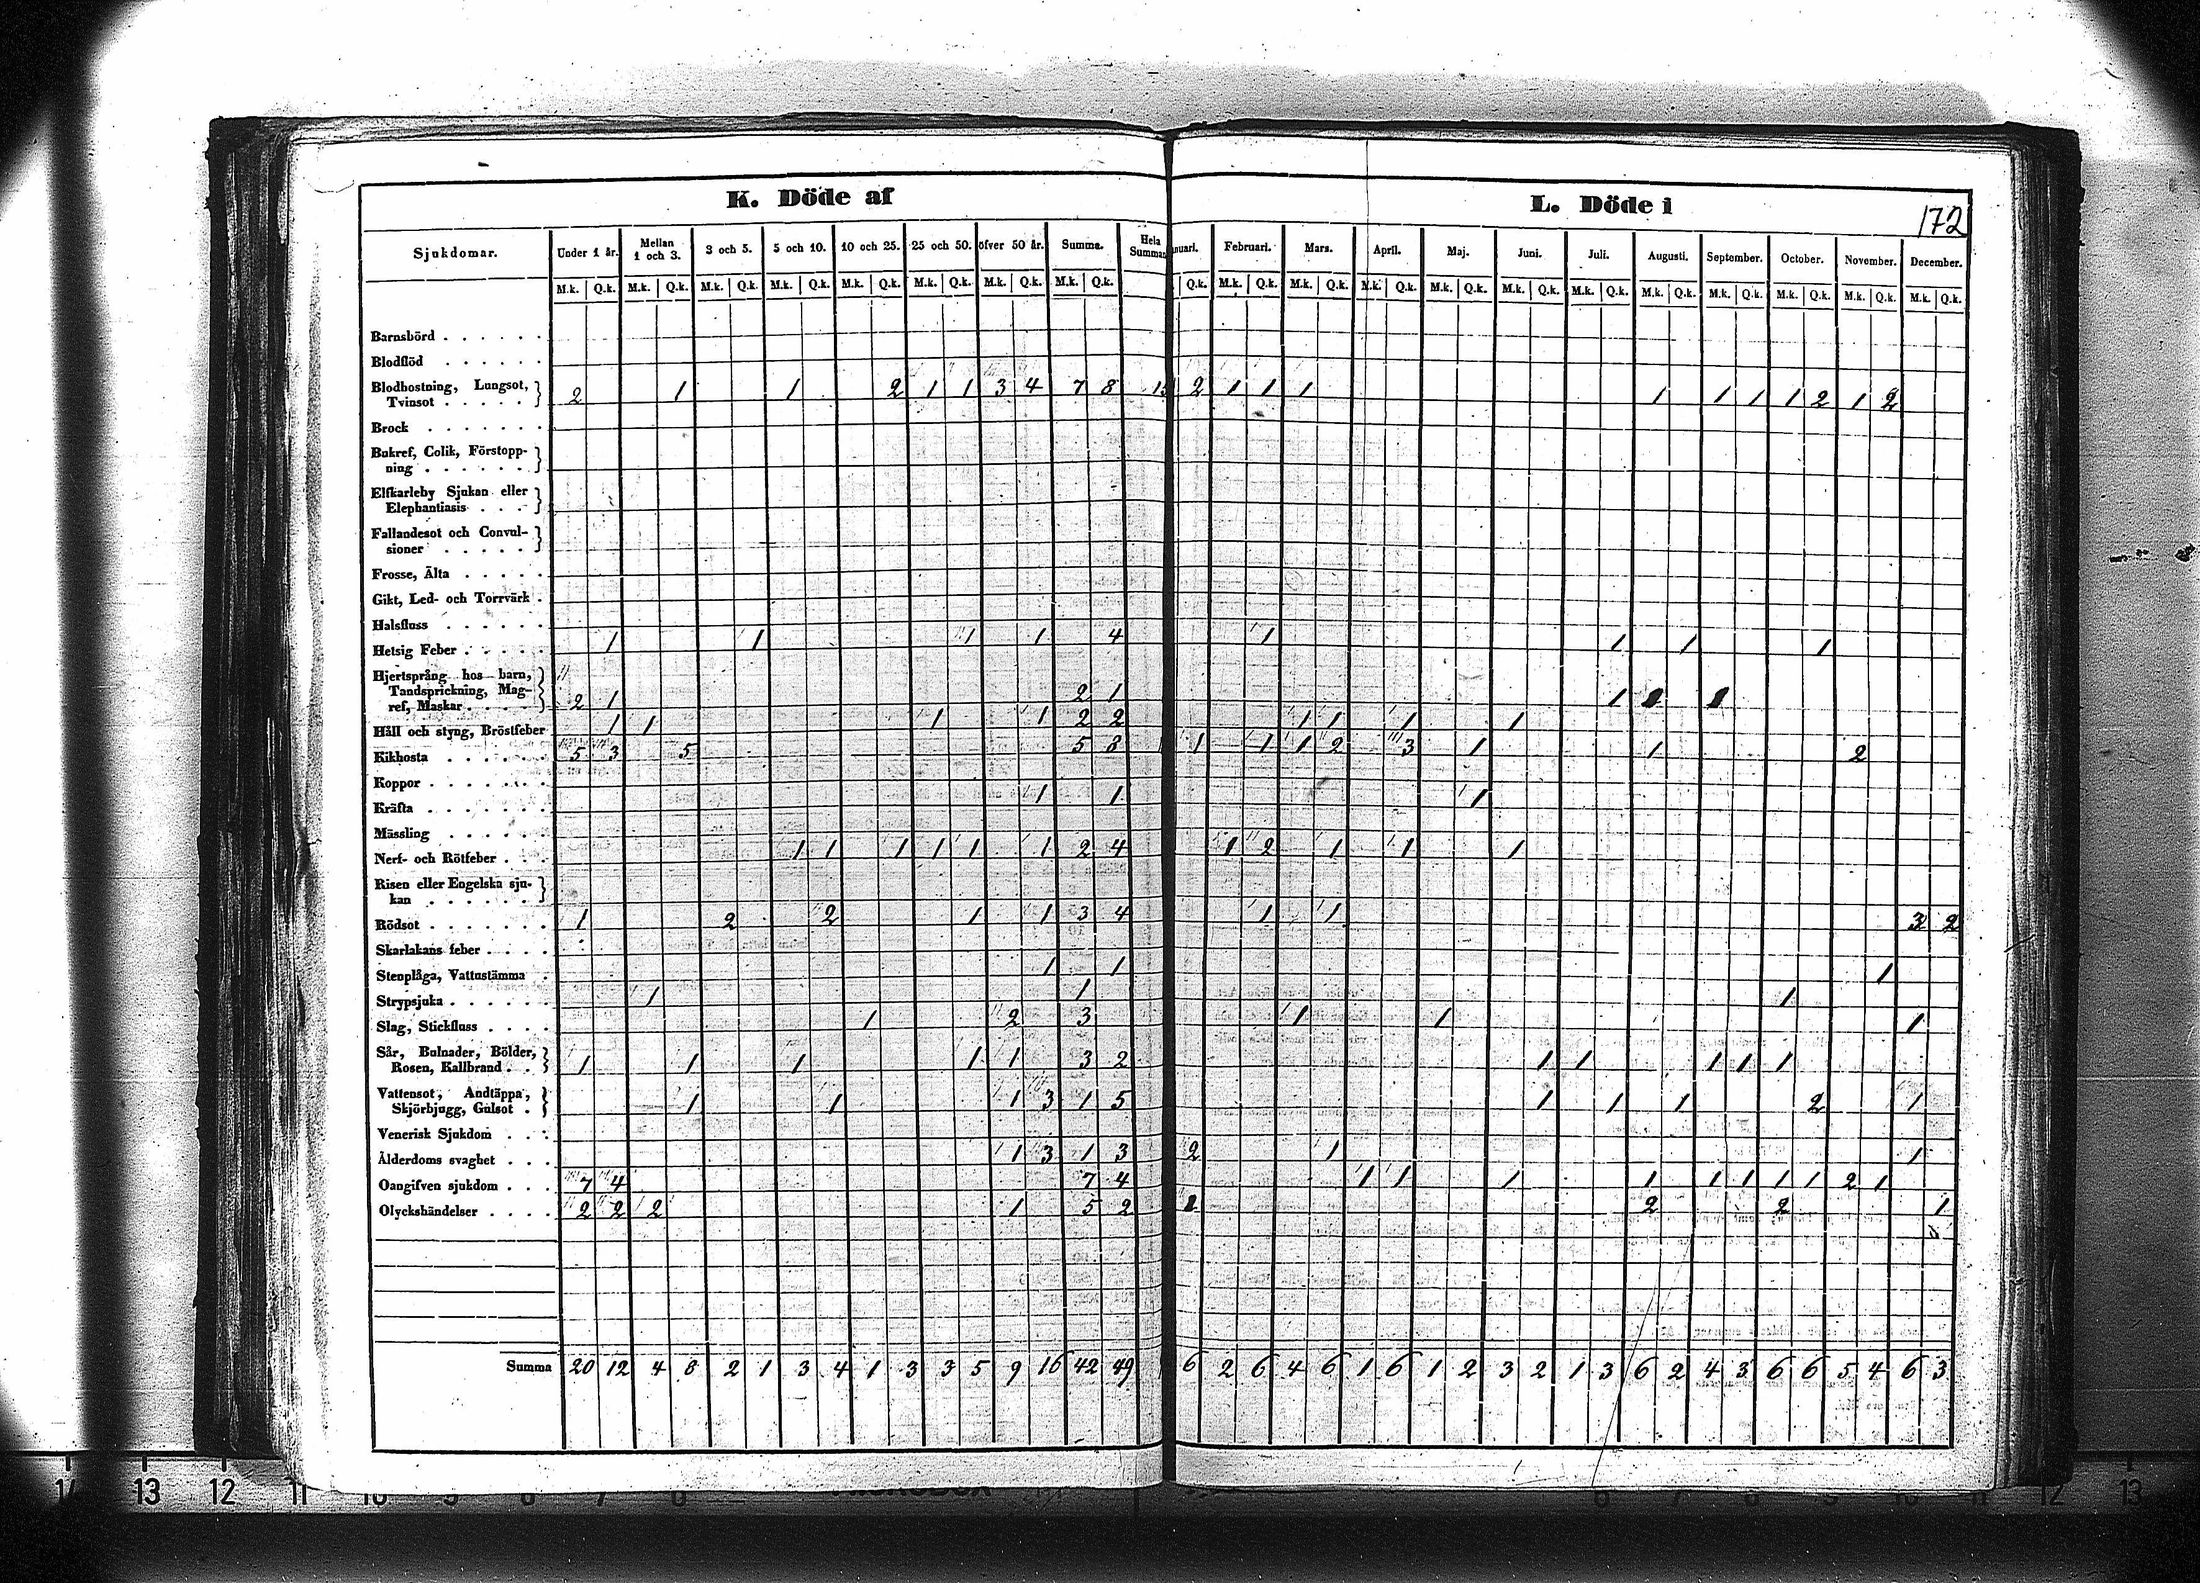 K. Döde af
L. Döde i
172
Sjukdomar. Under 1 år. Mellan 1 och 3. 3 och 5. 5 och 10. 10 och 25. 25 och 50. öfver 50 år. Summa. Hela Summan nuari. Februari. Mars. April. Maj. Juni. Juli. Augusti. September. October. November. December.
M.k. Q.k. M.k. Q.k. M.k. Q.k. M.k. Q.k. M.k. Q.k. M.k. Q.k. M.k. Q.k. M.k. Q.k. Q.k. M.k. Q.k. M.k. Q.k. M.k. Q.k. M.k. Q.k. M.k. Q.k. M.k. Q.k. M.k. Q.k. M.k. Q.k. M.k. Q.k. M.k. Q.k. M.k. Q.k.
Barnsbörd
Blodflöd
Blodhostning, Lungsot,
Tvinsot 2 1 1 2 1 1 3 4 7 8 15 2 1 1 1 1 1 1 1 2 1 2
Brock
Bukref, Colik, Förstopp-
ning
Elfkarleby Sjukan eller
Elephantiasis
Fallandesot och Convul-
sioner
Frosse, Älta
Gikt, Led- och Torrvärk
Halsfluss
Hetsig Feber 1 1 1 1 4 1 1 1 1
Hjertsprång hos barn,
Tandsprickning, Mag-
ref, Maskar 2 1 2 1 1
Håll och styng, Bröstfeber 1 1 1 1 2 2 1 1 1 1
Kikhosta 5 3 5 5 8 1 1 1 2 3 1 1 2
Koppor
Kräfta 1 1 1
Mässling
Nerf- och Rötfeber 1 1 1 1 1 1 2 4 1 2 1 1 1
Risen eller Engelska sju-
kan
Rödsot 1 2 2 1 1 3 4 1 1 3 2
Skarlakans feber
Stenplåga, Vattustämma 1 1 1
Strypsjuka 1 1 1
Slag, Stickfluss 1 2 3 1 1 1
Sår, Bulnader, Bölder,
Rosen, Kallbrand 1 1 1 1 1 3 2 1 1 1 1 1
Vattensot, Andtäppa,
Skjörbjugg, Gulsot 1 1 1 3 1 5 1 1 1 2 1
Venerisk Sjukdom
Ålderdoms svaghet 1 3 1 3 2 1 1
Oangifven sjukdom 7 4 7 4 1 1 1 1 1 1 1 1 2 1
Olyckshändelser 2 2 2 1 5 2 2 2 1
Summa 20 12 4 8 2 1 3 4 1 3 3 5 9 16 42 49 6 2 6 4 6 1 6 1 2 3 2 1 3 6 2 4 3 6 6 5 4 6 3